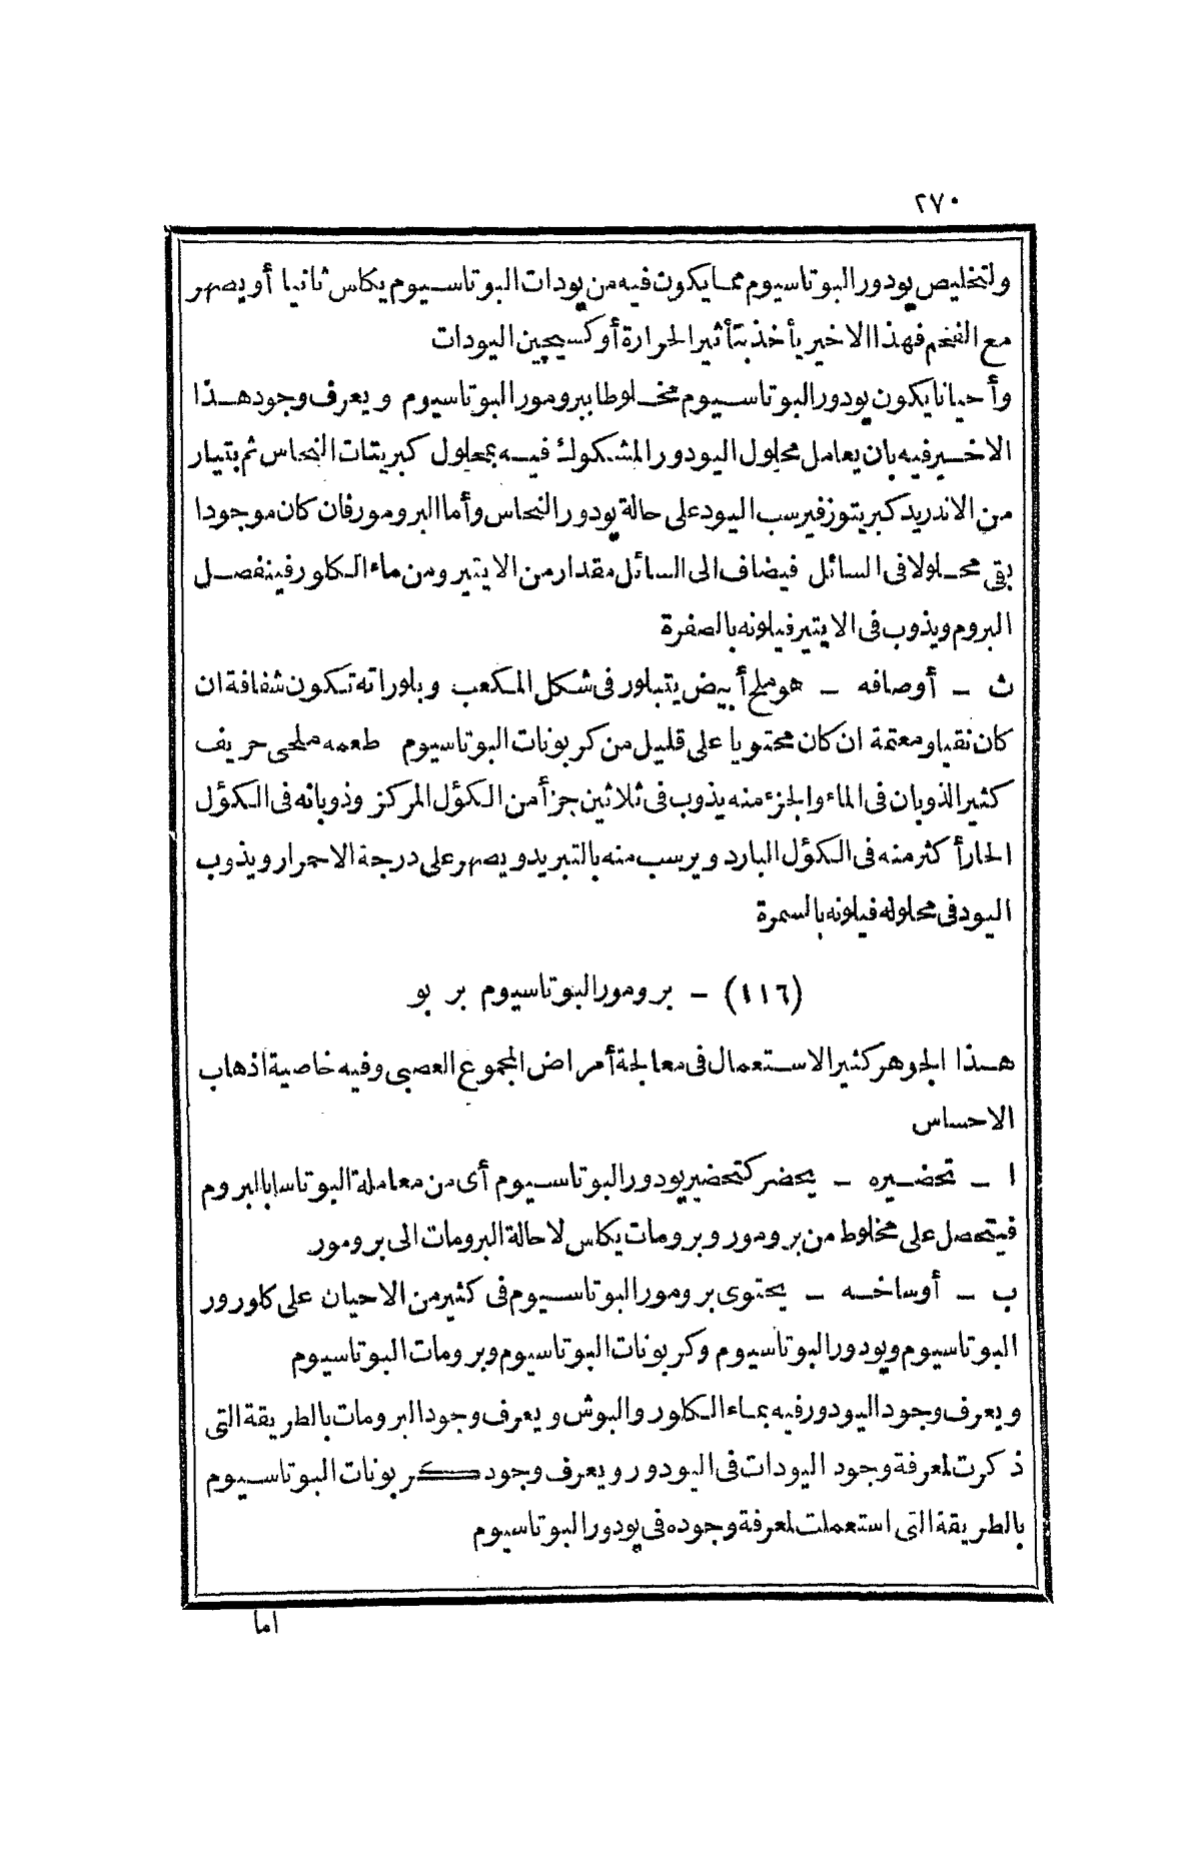 ٢٧٠
ولتخليص يودور البوتاسيوم مما يكون فيه من يودات البوتاسيوم يكاس ثانيا أو يصهر
مع الفحم فهذا الاخير يأخذ بتأثير الحرارة أوكسيچين اليودات
وأحيانا يكون يودور البوتاسيوم مخلوطا ببرومور البوتاسيوم ويعرف وجود هذا
الاخير فيه بان يعامل محلول اليودور المشكوك فيه بمحلول كبريتات النحاس ثم بتيار
من الاندريد كبريتوز فيرسب اليود على حالة يودور النحاس وأما البرومور فان كان موجودا
بقى محلولا فى السائل فيضاف الى السائل مقدار من الايتير ومن ماء الكلور فينفصل
البروم ويذوب فى الايتير فيلونه بالصفرة
ث ــ أوصافه ــ هو ملح أبيض يتبلور فى شكل المكعب وبلوراته تكون شفافة ان
كان نقيا ومعتمة ان كان محتويا على قليل من كربونات البوتاسيوم طعمه ملحى حريف
كثير الذوبان فى الماء والجزء منه يذوب فى ثلاثين جزأ من الكؤل المركز وذوبانه فى الكؤل
الحار أكثر منه فى الكؤل البارد ويرسب منه بالتبريد ويصهر على درجة الاحمرار ويذوب
اليود فى محلوله فيلونه بالسمرة
(١١٦) ــ برومور البوتاسيوم بر بو
هذا الجوهر كثير الاستعمال فى معالجة أمراض المجموع العصبى وفيه خاصية اذهاب
الاحساس
ا ــ تحضيره ــ يحضر كتحضير يودور البوتاسيوم أى من معاملة البوتاسا بالبروم
فيتحصل على مخلوط من برومور وبرومات يكاس لاحالة البرومات الى برومور
ب ــ أوساخه ــ يحتوى برومور البوتاسيوم فى كثير من الاحيان على كلورور
البوتاسيوم ويودور البوتاسيوم وكربونات البوتاسيوم وبرومات البوتاسيوم
ويعرف وجود اليودور فيه بماء الكلور والبوش ويعرف وجود البرومات بالطريقة التى
ذكرت لمعرفة وجود اليودات فى اليودور ويعرف وجود كربونات البوتاسيوم
بالطريقة التى استعملت لمعرفة وجوده فى يودور البوتاسيوم
اما